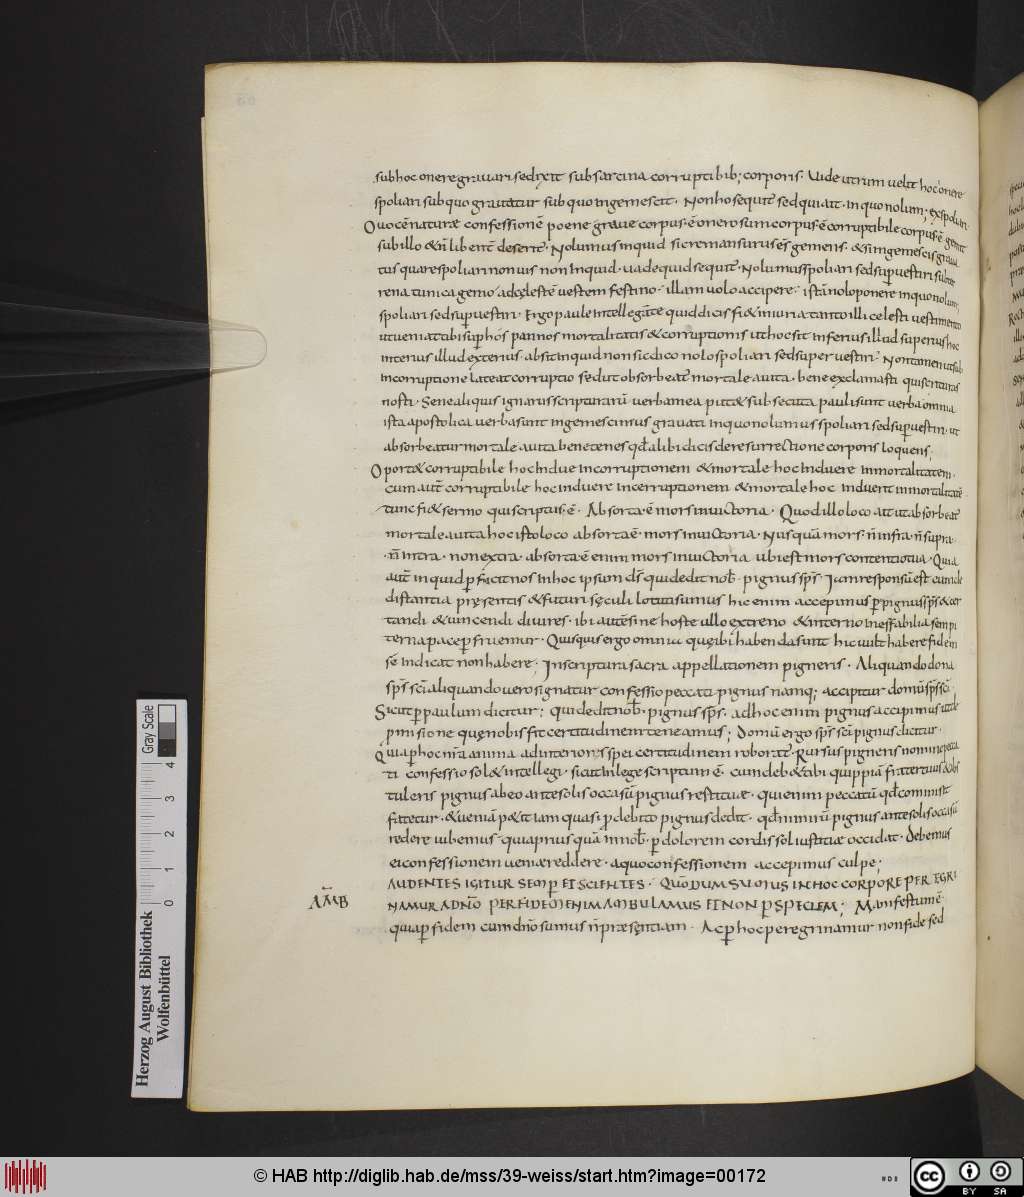 subhoc onere grauari sed ixit sub sarcina corruptibib; corporis. Uide utrum uelit hoc onere
spoliari sub quo grauatur sub quo ingemescit. Non hoc sequit sed qui ait. in quo nolum; exspoliari
Quo cēnaturae confessionē poene graue corpus. ē onerosum corpus. ē corruptibile corpus. ē gemit
sub illo & ñ libent deserit. Nolumus inquid sic remansurus es gemens. & si ingemescis graua
tus quare spoliari non uis non Inquid. uide quid sequit. Nolumus spoliari sed sup uestiri sub
rena tunica gemo ad cęlestē uestem festino. illam uolo accipere. istā nolo ponere in quo nolum;
spoliari sed sup uestiri. Ergo paule Intellegā te quid dicis fi& iniuria tanto illi celesti uestimento
ut ueniat tibi sup hos pannos mortalitatis & corruptionis ut hoc sit inferius illud superius hoc
interius illud exterius. absit inquid non sic dico nolo spoliari sed super uestiri. Non tamen ut sub
incorruptione lateat corruptio sed ut absorbeat mortale a uita. bene exclamasti qui scripturas
nosti. Sene aliquis ignarus scripturarū uerba mea put& sub secuta pauli sunt uerba omnia
ista apostolica uerba sunt ingemescimus grauati in quo nolumus spoliari sed sup uestiri. ut
absorbeatur mortale a uita bene tenes qđ alibi dicis de resurrectione corporis loquens,
Oport& corruptibile hoc Indue incorruptionem & mortale hoc induere inmortalitatem.
cum aut corruptibile hoc induere incorruptionem & mortale hoc induerit inmortalitatē
tunc fi& sermo qui scriptus. ē. Absorta. ē mors in uictoria. Quod illo loco ait ut absorbeat
mortale a uita hoc isto loco absorta ē. mors in uictoria. Nusquā mors. ñ infra. ñ supra.
ñ intra. non extra. absorta. ē enim mors in uictoria ubi est mors contentio tua. Qui a
aut inquid pficit nos in hoc ipsum ds̄ qui dedit nob. pignus sps̄. Iam responsū est cum de
distantia pręsentis & futuri sęculi locuti sumus hic enim accepimus p pignus sps̄ & cer
tandi & uincendi di uires. ibi autē sine hoste ullo extreno & interno ineffabilia sempi
terna pace p fruemur. Quisquis ergo omnia quę ibi habenda sunt hic uult habere fidem
sē indicat non habere. In scriptura sacra appellationem pigneris. Aliquando dona
sps̄ sci aliquando uero signatur confessio peccati. pignus namq; accipitur donū sps̄ sci.
Sicut p paulum dicitur; qui dedit nob. pignus sps̄. ad hoc enim pignus accipimus ut de
pmisione quę nobis fit certitudinem teneamus; Donū ergo sps̄ sci pignus dicitur.
Quia p hoc nr̄a anima ad interioris spei certitudinem roborat. Rursus pigneris nomine pecca
ti confessio sol& intellegi. sicut In lege scriptum ē. cum deb& tibi quippiā frater tuus & abs
tuleris pignus ab eo ante solis occasū pignus restituae. qui enim peccatū qđ commisit
fatetur. & ueniā p&it iam quasi p debito pignus dedit. qđ nimirū pignus ante solis occasū
redere iubemus. quia prius quā in nob. p dolorem cordis sol iustitiae occidat. debemus
ei confessionem ueniae reddere. a quo confessionem accepimus culpe;
AUDENTES IGITUR SEMP ET SCIENTES. QUŌ DUM SUMUS IN HOC CORPORE PEREGRI
NAMUR A DNO PER FIDEM ENIM AMBULAMUS ET NON P SPECIEM; Manifestum ē.
AMB
quia p fidem cum dno sumus ñ praesentiam. Ac p hoc peregrinamur non fide sed
Herzog August Bibliothek
Wolfenbüttel
Gray Scale
0 1 2 3 4
© HAB http://diglib.hab.de/mss/39-weiss/start.htm?image=00172
cc BY SA